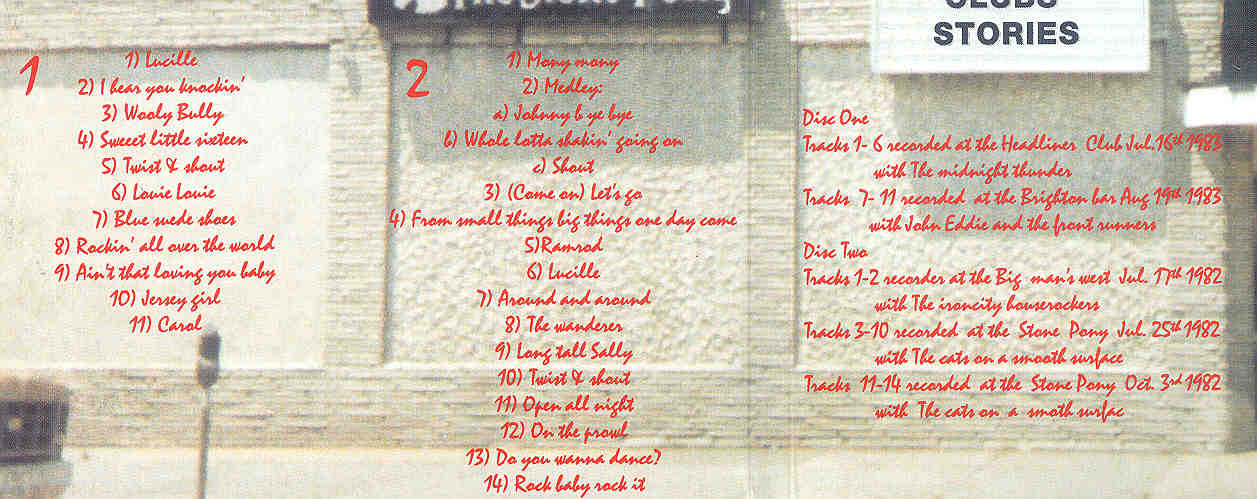 The Stone Pony
CLUBS
STORIES
1
1) Lucille
2) I hear you knockin'
3) Wooly Bully
4) Sweeet little sixteen
5) Twist & shout
6) Louie Louie
7) Blue suede shoes
8) Rockin' all over the world
9) Ain't that loving you baby
10) Jersey girl
11) Carol
2
1) Mony mony
2) Medley:
a) Johnny b ye bye
b) Whole lotta shakin' going on
c) Shout
3) (Come on) Let's go
4) From small things big things one day come
5)Ramrod
6) Lucille
7) Around and around
8) The wanderer
9) Long tall Sally
10) Twist & shout
11) Open all night
12) On the prowl
13) Do you wanna dance?
14) Rock baby rock it
Disc One
Tracks 1- 6 recorded at the Headliner Club Jul.16th 1983
with The midnight thunder
Tracks 7- 11 recorded at the Brighton bar Aug 19th 1983
with John Eddie and the front runners
Disc Two
Tracks 1-2 recorder at the Big man's west Jul. 17th 1982
with The ironcity houserockers
Tracks 3-10 recorded at the Stone Pony Jul. 25th 1982
with The cats on a smooth surface
Tracks 11-14 recorded at the Stone Pony Oct. 3rd 1982
with The cats on a smoth surfac